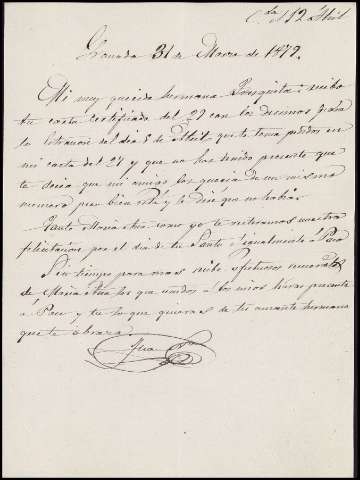 C.da el 12 Abril
Granada 31 de Marzo de 1879.
Mi muy querida hermana Paquita: recibo
tu carta certificada del 29 con los decimos para
la lotería del día 5 de Abril, que te tenía pedidos en
mi carta del 27 y que no has tenido presente que
te decía que mis amigos los quería de un mismo
numero pues bien está y te dire que no
Tanto Maria Ana como yo te reiteramos nuestra
felicitacion por el dia de tu Santo e igualmente á Paco
Sin tiempo para mas recibe afectuosos recuerdos
de Maria Ana los que unidos á los mios harás presente
á Paco y tu lo que quieras de tu amante hermano
que te abraza
Juan